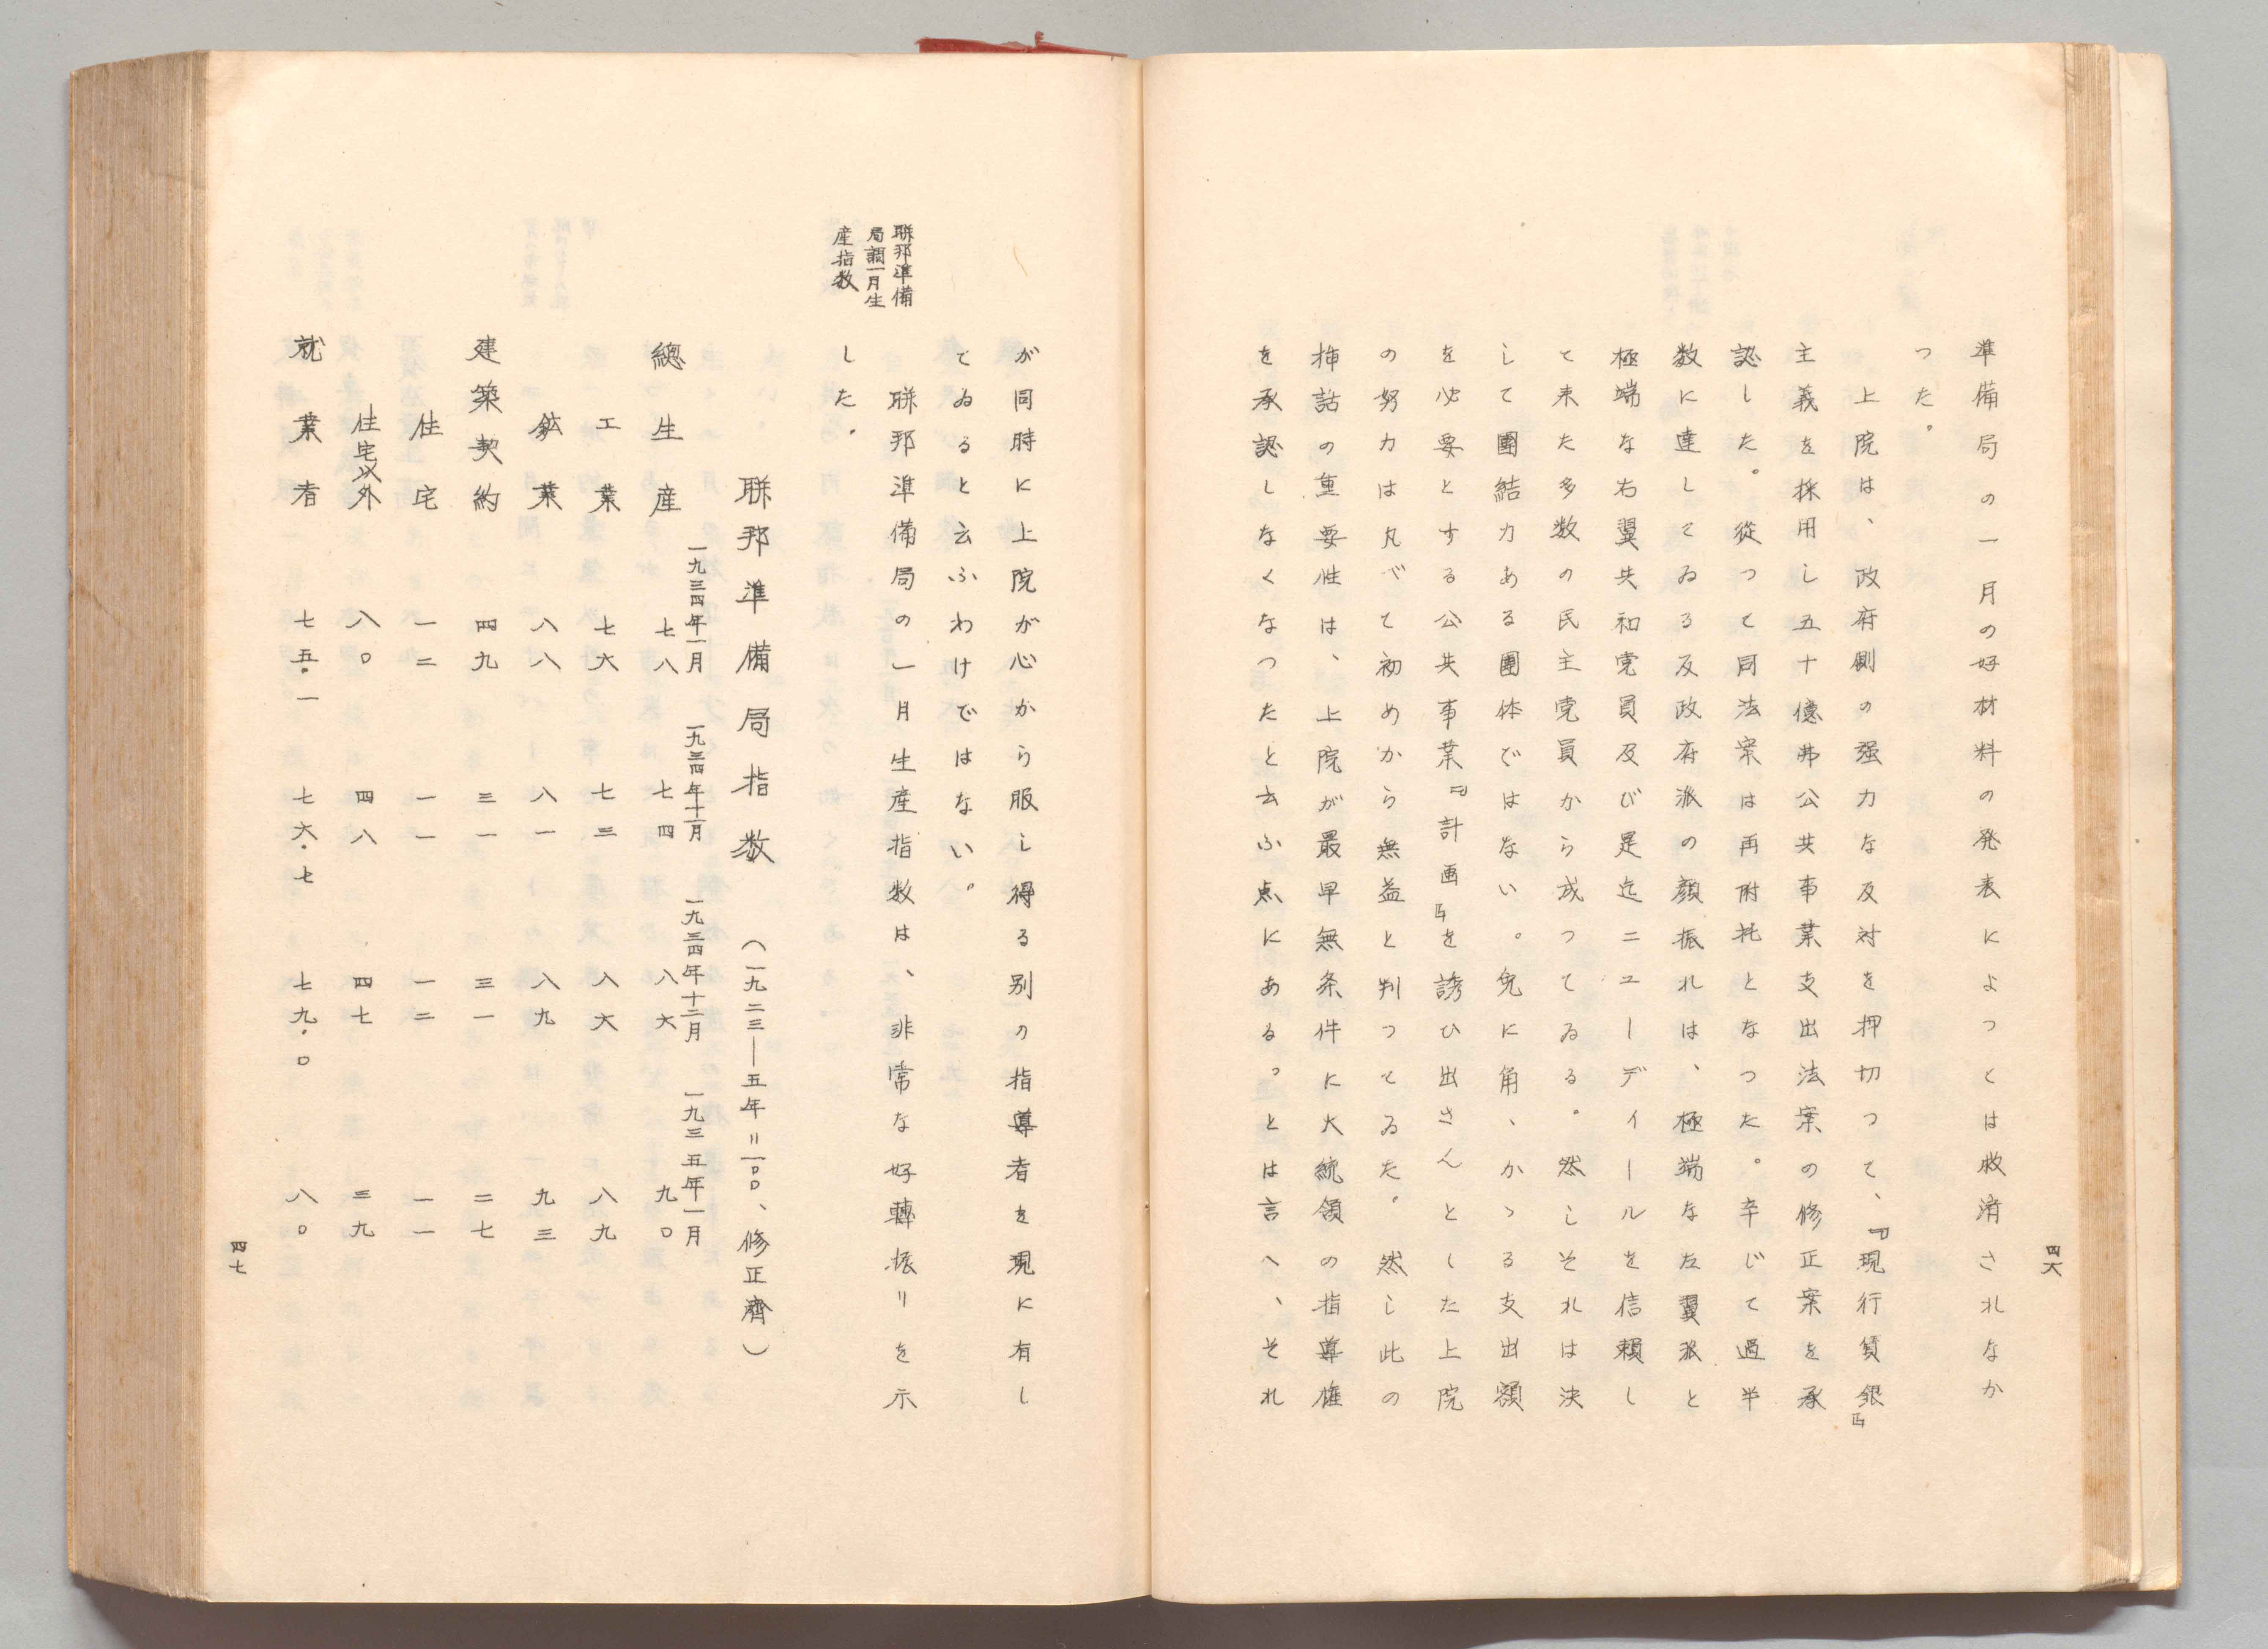 四六
準備局の一月の好材料の発表によつくは救済されなか
つた。
上院は、政府側の强力な反対を押切つて、『現行賃銀』
主義を採用し五十億弗公共事業支出法案の修正案を承
認した。従つて同法案は再附托となつた。辛じて過半
数に達してゐる反政府派の顔振れは、極端な左翼派と
極端な右翼共和党員及び是迄ニューディールを信頼し
て来た多数の民主党員から成つてゐる。然しそれは決
して團結力ある團体ではない。兎に角、かゝる支出額
を必要とする公共事業『計画』を誘ひ出さんとした上院
の努力は凡べて初めから無益と判つてゐた。然し此の
挿話の重要性は、上院が最早無条件に大統領の指導権
を承認しなくなつたと云ふ点にある。とは言へ、それ
が同時に上院が心から服し得る別の指導者を現に有し
てゐると云ふわけではない。
聯邦準備
局調一月生
産指数
聯邦準備局の一月生産指数は、非常な好轉振りを示
した。
聯邦準備局指数 (一九二三―五年=一〇〇、修正濟)
一九三四年一月 一九三四年十一月 一九三四年十二月 一九三五年一月
總生産 七八 七四 八六 九〇
工業 七六 七三 八六 八九
鉱業 八八 八一 八九 九三
建築契約 四九 三一 三一 二七
住宅 一二 一一 一二 一一
住宅以外 八〇 四八 四七 三九
就業者 七五.一 七六.七 七九.〇 八〇
四七